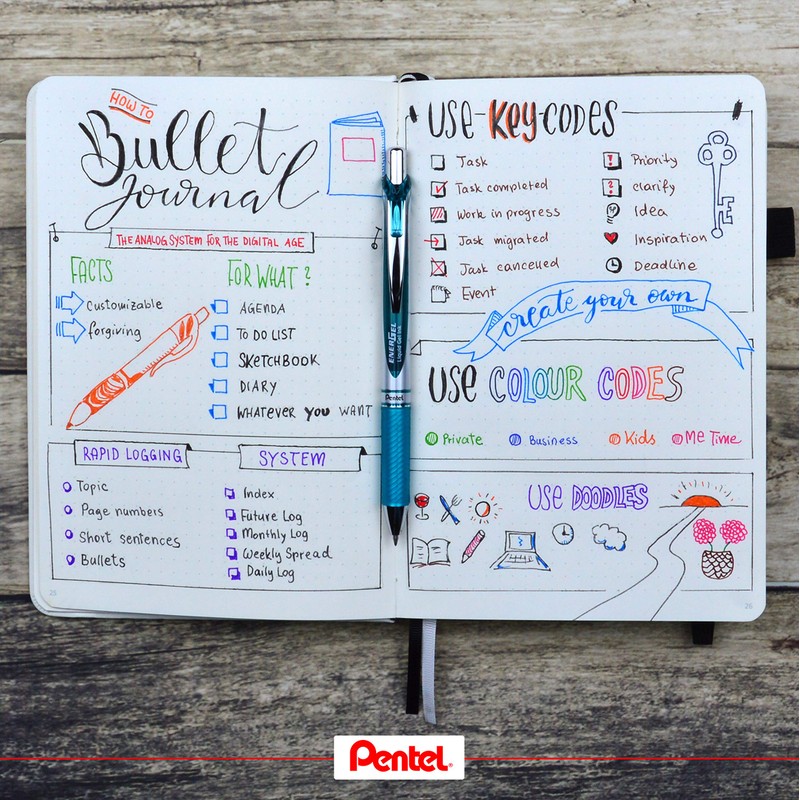 HOW TO
Bullet
Journal
THE ANALOG SYSTEM FOR THE DIGITAL AGE
FACTS
Customizable
forgiving
FOR WHAT?
AGENDA
TO DO LIST
SKETCHBOOK
DIARY
WHATEVER YOU WANT
RAPID LOGGING
Topic
Page numbers
Short sentences
Bullets
SYSTEM
Index
Future Log
Monthly Log
Weekly Spread
Daily Log
25
ENERGEL
Liquid Gel Ink
Pentel
USE KEY-CODES
Task
Task completed
Work in progress
Task migrated
Task cancelled
Event
Priority
clarify
Idea
Inspiration
Deadline
create your own
USE COLOUR CODES
Private
Business
Kids
Me Time
USE DOODLES
26
Pentel